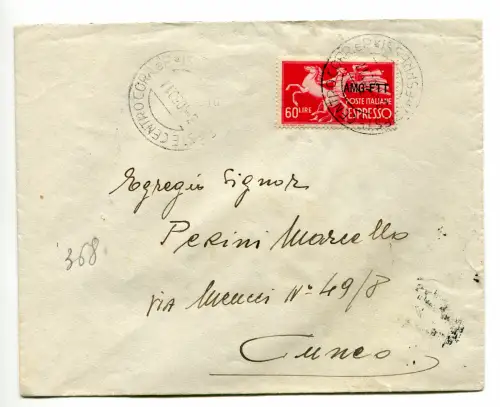 AMG-FTT
60 LIRE
POSTE ITALIANE
ESPRESSO
Egregio Signor
Perini Marcello
via Meucci N° 49/8
Cuneo
368